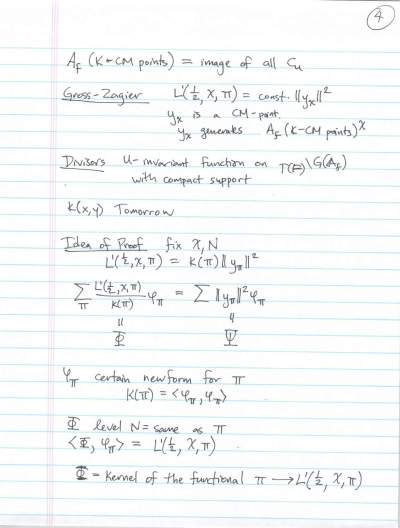 4
A_f (K-CM points) = image of all C_u
Gross-Zagier L'(½, χ, π) = const. ||y_χ||²
y_χ is a CM-point.
y_χ generates A_f (K-CM points)^χ
Divisors U-invariant function on T(F)\G(A_f)
with compact support
K(x,y) Tomorrow
Idea of Proof fix χ, N
L'(½, χ, π) = K(π) ||y_π||²
∑_π L'(½, χ, π)/K(π) φ_π = ∑ ||y_π||² φ_π
॥ ॥
Φ Ψ
φ_π certain newform for π
K(π) = ⟨φ_π, φ_π⟩
Φ level N = same as π
⟨Φ, φ_π⟩ = L'(½, χ, π)
Φ = Kernel of the functional π → L'(½, χ, π)